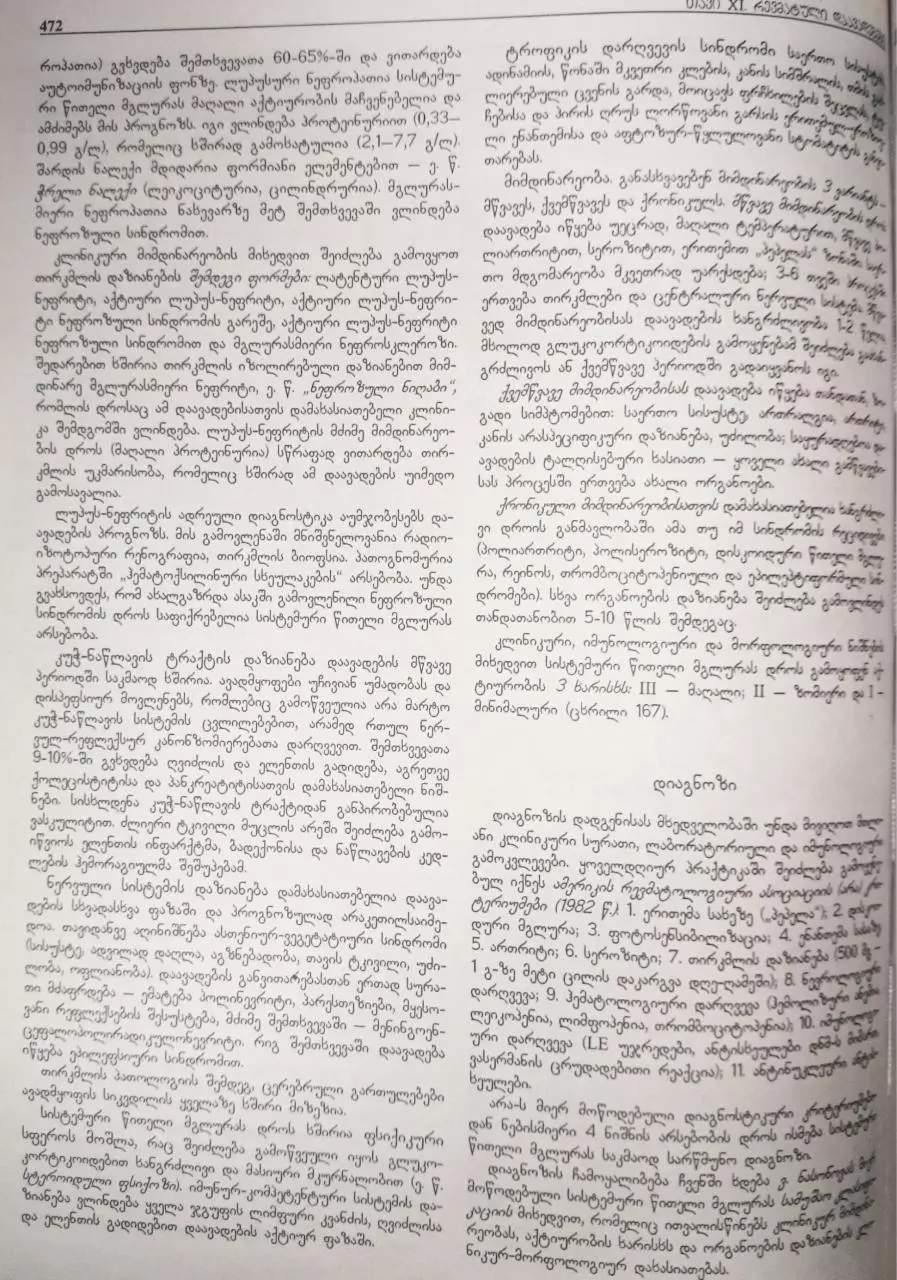 472
თავი XI. რევმატული დაავადებები
როპათია) გვხვდება შემთხვევათა 60-65%-ში და ვითარდება
აუტოიმუნიზაციის ფონზე. ლუპუსური ნეფროპათია სისტემუ-
რი წითელი მგლურას მაღალი აქტიურობის მაჩვენებელია და
ამძიმებს მის პროგნოზს. იგი ვლინდება პროტეინურიით (0,33—
0,99 გ/ლ), რომელიც ხშირად გამოხატულია (2,1—7,7 გ/ლ).
შარდის ნალექი მდიდარია ფორმიანი ელემენტებით — ე. წ.
ჭრელი ნალექი (ლეიკოციტურია, ცილინდრურია). მგლურას-
მიერი ნეფროპათია ნახევარზე მეტ შემთხვევაში ვლინდება
ნეფროზული სინდრომით.
კლინიკური მიმდინარეობის მიხედვით შეიძლება გამოვყოთ
თირკმლის დაზიანების შემდეგი ფორმები: ლატენტური ლუპუს-
ნეფრიტი, აქტიური ლუპუს-ნეფრიტი, აქტიური ლუპუს-ნეფრი-
ტი ნეფროზული სინდრომის გარეშე, აქტიური ლუპუს-ნეფრიტი
ნეფროზული სინდრომით და მგლურასმიერი ნეფროსკლეროზი.
შედარებით ხშირია თირკმლის იზოლირებული დაზიანებით მიმ-
დინარე მგლურასმიერი ნეფრიტი, ე. წ. „ნეფროზული ნიღაბი“,
რომლის დროსაც ამ დაავადებისათვის დამახასიათებელი კლინი-
კა შემდგომში ვლინდება. ლუპუს-ნეფრიტის მძიმე მიმდინარეო-
ბის დროს (მაღალი პროტეინურია) სწრაფად ვითარდება თირ-
კმლის უკმარისობა, რომელიც ხშირად ამ დაავადების უიმედო
გამოსავალია.
ლუპუს-ნეფრიტის ადრეული დიაგნოსტიკა აუმჯობესებს და-
ავადების პროგნოზს. მის გამოვლენაში მნიშვნელოვანია რადიო-
იზოტოპური რენოგრაფია, თირკმლის ბიოფსია. პათოგნომურია
პრეპარატში „ჰემატოქსილინური სხეულაკების“ არსებობა. უნდა
გვახსოვდეს, რომ ახალგაზრდა ასაკში გამოვლენილი ნეფროზული
სინდრომის დროს საფიქრებელია სისტემური წითელი მგლურას
არსებობა.
კუჭ-ნაწლავის ტრაქტის დაზიანება დაავადების მწვავე
პერიოდში საკმაოდ ხშირია. ავადმყოფები უჩივიან უმადობას და
დისპეფსიურ მოვლენებს, რომლებიც გამოწვეულია არა მარტო
კუჭ-ნაწლავის სისტემის ცვლილებებით, არამედ რთულ ნერ-
ვულ-რეფლექსურ კანონზომიერებათა დარღვევით. შემთხვევათა
9-10%-ში გვხვდება ღვიძლის და ელენთის გადიდება, აგრეთვე
ქოლეცისტიტისა და პანკრეატიტისათვის დამახასიათებელი ნიშ-
ნები. სისხლდენა კუჭ-ნაწლავის ტრაქტიდან განპირობებულია
ვასკულიტით. ძლიერი ტკივილი მუცლის არეში შეიძლება გამო-
იწვიოს ელენთის ინფარქტმა, ბადექონისა და ნაწლავების კედ-
ლების ჰემორაგიულმა შეშუპებამ.
ნერვული სისტემის დაზიანება დამახასიათებელია დაავა-
დების სხვადასხვა ფაზაში და პროგნოზულად არაკეთილსაიმე-
დოა. თავიდანვე აღინიშნება ასთენიურ-ვეგეტატიური სინდრომი
(სისუსტე, ადვილად დაღლა, აგზნებადობა, თავის ტკივილი, უძი-
ლობა, ოფლიანობა). დაავადების განვითარებასთან ერთად სურა-
თი მძაფრდება — ემატება პოლინევრიტი, პარესთეზიები, მყესო-
ვანი რეფლექსების შესუსტება, მძიმე შემთხვევაში — მენინგოენ-
ცეფალოპოლირადიკულონევრიტი. რიგ შემთხვევაში დაავადება
იწყება ეპილეფსიური სინდრომით.
თირკმლის პათოლოგიის შემდეგ, ცერებრული გართულებები
ავადმყოფის სიკვდილის ყველაზე ხშირი მიზეზია.
სისტემური წითელი მგლურას დროს ხშირია ფსიქიკური
სფეროს მოშლა, რაც შეიძლება გამოწვეული იყოს გლუკო-
კორტიკოიდებით ხანგრძლივი და მასიური მკურნალობით (ე. წ.
სტეროიდული ფსიქოზი). იმუნურ-კომპეტენტური სისტემის და-
ზიანება ვლინდება ყველა ჯგუფის ლიმფური კვანძის, ღვიძლისა
და ელენთის გადიდებით დაავადების აქტიურ ფაზაში.
ტროფიკის დარღვევის სინდრომი საერთო სისუსტის,
ადინამიის, წონაში მკვეთრი კლების, კანის სიმშრალის, თმის
ლიერებული ცვენის გარდა, მოიცავს ფრჩხილების შეცვლას,
ჩებისა და პირის ღრუს ლორწოვანი გარსის
ლი ენანთემისა და აფტოზურ-წყლულოვანი სტომატიტის
თარებას.
მიმდინარეობა. განასხვავებენ მიმდინარეობის 3 ვარიანტს —
მწვავეს, ქვემწვავეს და ქრონიკულს. მწვავე მიმდინარეობის დროს
დაავადება იწყება უეცრად, მაღალი ტემპერატურით, მწვავე პო-
ლიართრიტით, სეროზიტით, ერითემით „პეპელას“ ზონაში. საერ-
თო მდგომარეობა მკვეთრად უარესდება; 3-6 თვეში პროცესში
ერთვება თირკმლები და ცენტრალური ნერვული სისტემა. მწვა-
ვედ მიმდინარეობისას დაავადების ხანგრძლივობა 1-2 წელია.
მხოლოდ გლუკოკორტიკოიდების გამოყენებამ შეიძლება გაახან-
გრძლივოს ან ქვემწვავე პერიოდში გადაიყვანოს იგი.
ქვემწვავე მიმდინარეობისას დაავადება იწყება თანდათან, ზო-
გადი სიმპტომებით: საერთო სისუსტე, ართრალგია, ართრიტი,
კანის არასპეციფიკური დაზიანება, უძილობა; საყურადღებოა და-
ავადების ტალღისებური ხასიათი — ყოველი ახალი გამწვავები-
სას პროცესში ერთვება ახალი ორგანოები.
ქრონიკული მიმდინარეობისათვის დამახასიათებელია ხანგრძლი-
ვი დროის განმავლობაში ამა თუ იმ სინდრომის რეციდივები
(პოლიართრიტი, პოლისეროზიტი, დისკოიდური წითელი მგლუ-
რა, რეინოს, თრომბოციტოპენიული და ეპილეპტიფორმული სინ-
დრომები). სხვა ორგანოების დაზიანება შეიძლება გამოვლინდეს
თანდათანობით 5-10 წლის შემდეგაც.
კლინიკური, იმუნოლოგიური და მორფოლოგიური ნიშნების
მიხედვით სისტემური წითელი მგლურას დროს გამოყოფენ აქ-
ტიურობის 3 ხარისხს: III — მაღალი; II — ზომიერი და I -
მინიმალური (ცხრილი 167).
დიაგნოზი
დიაგნოზის დადგენისას მხედველობაში უნდა მივიღოთ მთლი-
ანი კლინიკური სურათი, ლაბორატორიული და იმუნოლოგიური
გამოკვლევები. ყოველდღიურ პრაქტიკაში შეიძლება გამოყენე-
ბულ იქნეს ამერიკის რევმატოლოგიური ასოციაციის (არა) კრი-
ტერიუმები (1982 წ.): 1. ერითემა სახეზე („პეპელა“); 2. დისკოი-
დური მგლურა; 3. ფოტოსენსიბილიზაცია; 4. ენანთემა
5. ართრიტი; 6. სეროზიტი; 7. თირკმლის დაზიანება (500 მგ -
1 გ-ზე მეტი ცილის დაკარგვა დღე-ღამეში); 8. ნევროლოგიური
დარღვევა; 9. ჰემატოლოგიური დარღვევა (ჰემოლიზური ანემია,
ლეიკოპენია, ლიმფოპენია, თრომბოციტოპენია); 10. იმუნოლოგი-
ური დარღვევა (LE უჯრედები, ანტისხეულები დნმ-ს მიმართ,
ვასერმანის ცრუდადებითი რეაქცია); 11. ანტინუკლეური ანტი-
სხეულები.
არა-ს მიერ მოწოდებული დიაგნოსტიკური კრიტერიუმები-
დან ნებისმიერი 4 ნიშნის არსებობის დროს ისმება სისტემური
წითელი მგლურას საკმაოდ სარწმუნო დიაგნოზი.
დიაგნოზის ჩამოყალიბება ჩვენში ხდება ვ. ნასონოვას მიერ
მოწოდებული სისტემური წითელი მგლურას სამუშაო კლასიფი-
კაციის მიხედვით, რომელიც ითვალისწინებს კლინიკურ მიმდინა-
რეობას, აქტიურობის ხარისხს და ორგანოების დაზიანების კლი-
ნიკურ-მორფოლოგიურ დახასიათებას.